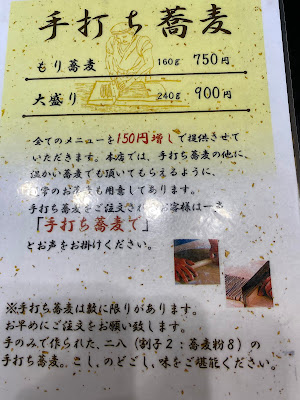 手打ち蕎麦
もり蕎麦 160g 750円
大盛り 240g 900円
全てのメニューを150円増しで提供させて
いただきます。本店では、手打ち蕎麦の他に、
温かい蕎麦でも頂いてもらえるように、
常のお蕎麦も用意してあります。
手打ち蕎麦をご注文されるお客様は一言
「手打ち蕎麦で」
とお声をお掛けください。
※手打ち蕎麦は数に限りがあります。
お早めにご注文をお願い致します。
手のみで作られた、二八（割子2：蕎麦粉8）の
手打ち蕎麦。こし、のどごし、味をご堪能ください。